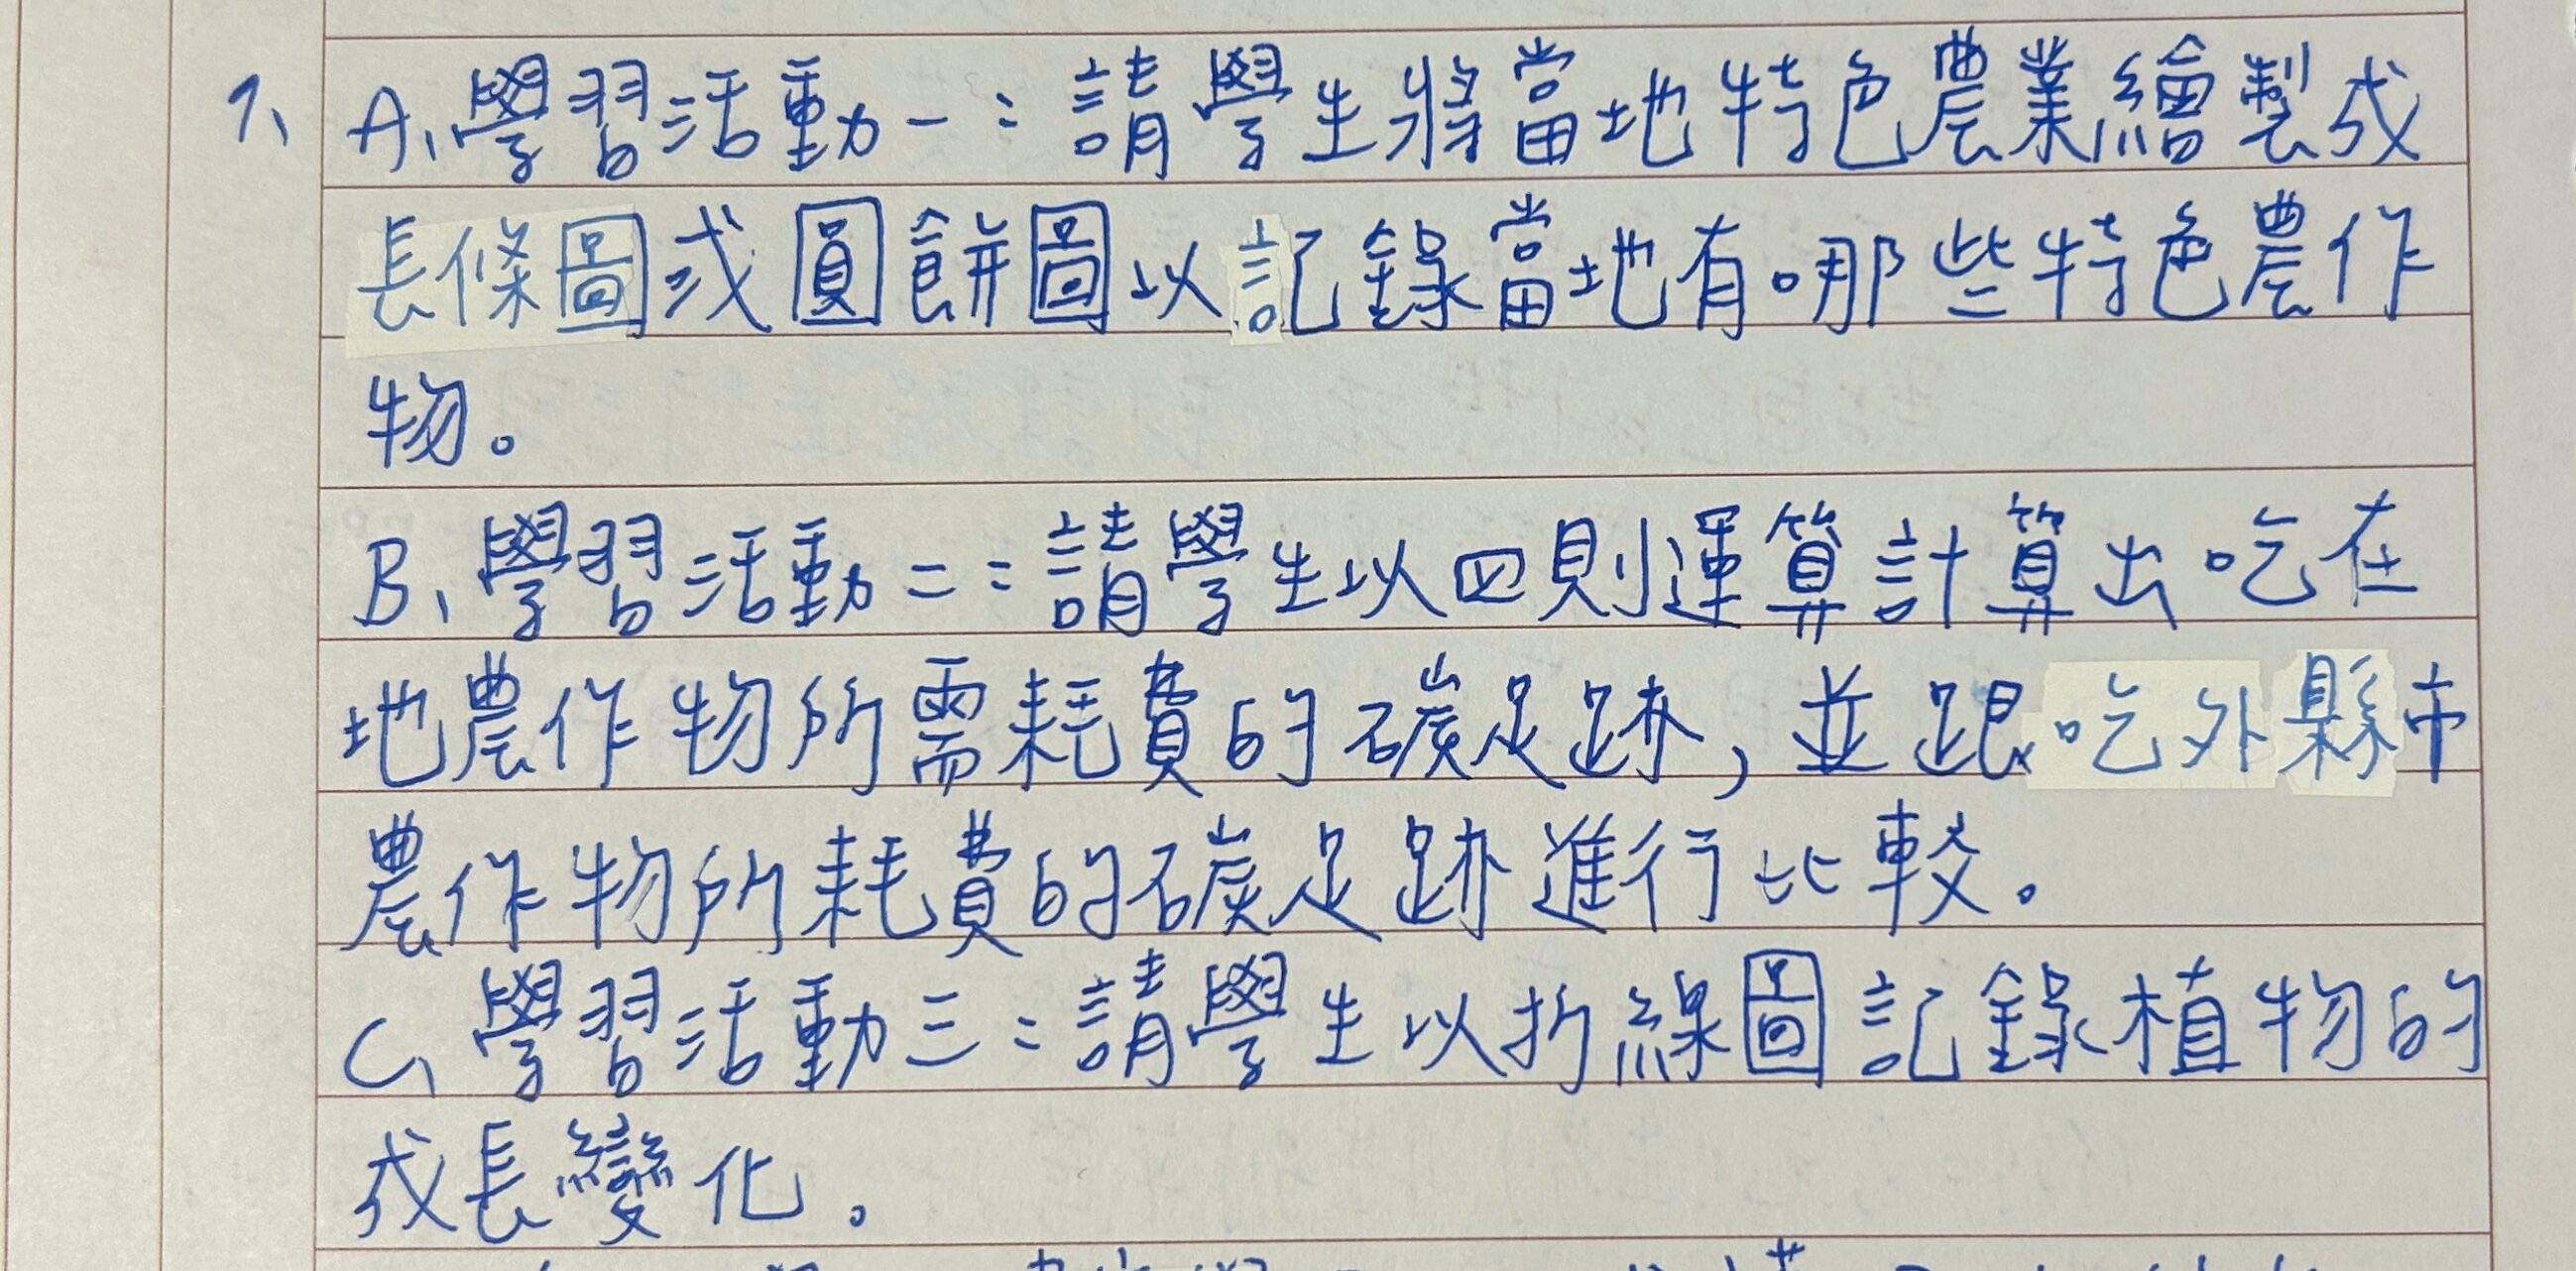 1、A、學習活動一：請學生將當地特色農業繪製成
長條圖或圓餅圖以記錄當地有哪些特色農作
物。
B、學習活動二：請學生以四則運算計算出吃在
地農作物所需耗費的碳足跡，並跟吃外縣市
農作物所耗費的碳足跡進行比較。
C、學習活動三：請學生以折線圖記錄植物的
成長變化。